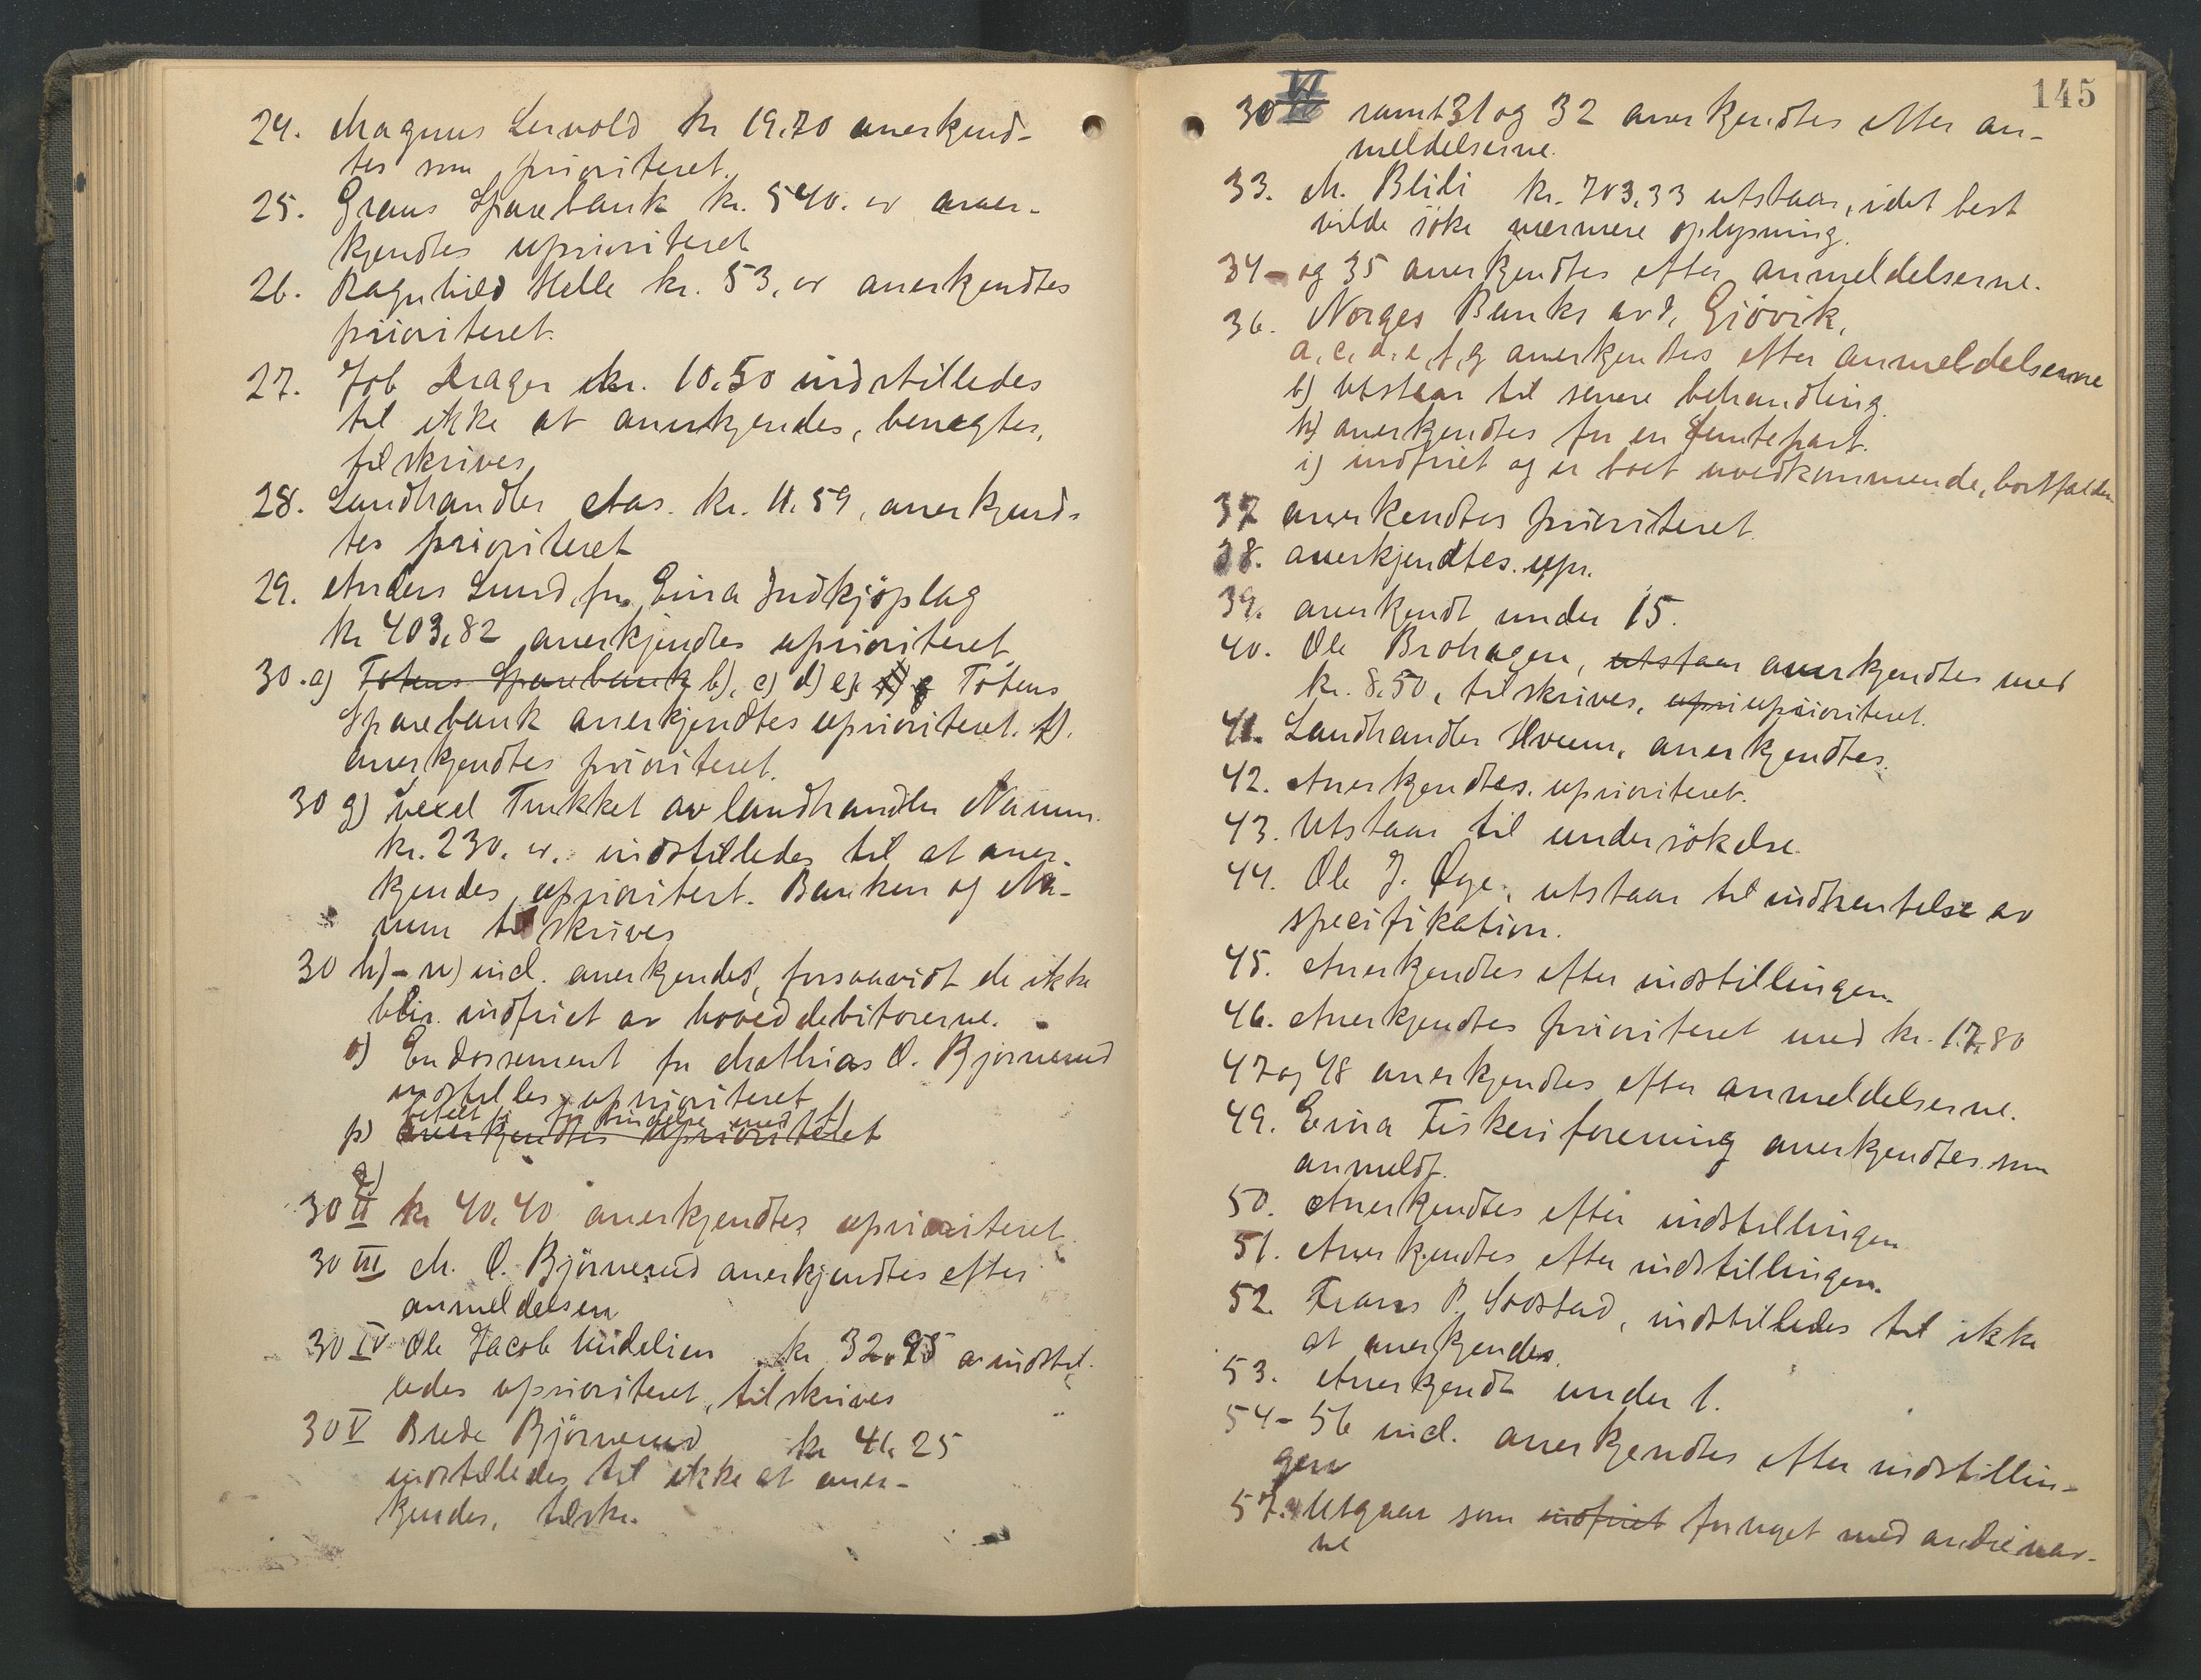 24. Magnus Lervold kr 19,70 anerkjend-
tes som prioriteret.
25. Grans Sparebank kr. 540. oo aner-
kjendtes uprioriteret
26. Ragnhild Helle kr. 53, oo anerkjendtes
prioriteret.
27. Job Krager kr. 10,50 indstilledes
til ikke at anerkjendes, benegtes,
tilskrives
28. Landhandler Aas. kr. 11,59, anerkjend-
tes prioriteret
29. Anders Lund, for Eina Indkjöpslag
kr 403,82 anerkjendtes uprioriteret
30. a) Totens Sparebank b), c) d) e), Totens
Sparebank anerkjendtes uprioriteret. f).
anerkjendtes prioriteret.
30 g) vexel Trukket av landhandler Narum
kr. 230. oo. indstilledes til at aner-
kjendes uprioritert. Banken og Na-
rum tilskrives
30 h)-n) incl. anerkjendes, forsaavidt de ikke
blir indfriet av hoveddebitorerne.
o) Endossement for Mathias O. Bjørnerud
indstilles uprioriteret
betalt
p) anerkjendtes uprioriteret
a)
30 II kr 40,40 anerkjendtes uprioriteret
30 III M. O. Björnerud anerkjendtes efter
anmeldelsen
30 IV Ole Jacob kr 32,95 indstil-
ledes uprioriteret, tilskrives
30 V Brede Björnerud kr 41,25
indstilledes til ikke at aner-
kjendes, tilskr.
145
30 VI samt 31 og 32 anerkjendtes efter an-
meldelserne.
33. M. Blili kr. 703,33 utstaar, idet best
vilde söke nærmere oplysning.
34 - og 35 anerkjendtes efter anmeldelserne.
36. Norges Banks avd, Gjövik,
a, c, d, e, f, g anerkjendtes efter anmeldelserne
b) utstaar til senere behandling.
h) anerkjendtes for en femtepart.
i) indfriet og er boet uvedkommende, bortfalder
37 anerkendtes prioriteret.
38. anerkjendtes. upr.
39. anerkjendt under 15.
40. Ole Brohagen, utstaar anerkjendtes med
kr. 8,50, tilskrives, upri uprioriteret.
41. Landhandler Hveem, anerkjendtes.
42. Anerkjendtes. uprioriteret.
43. Utstaar til undersökelse.
44. Ole J. Øye, utstaar til indhentelse av
specifikation.
45. Anerkjendtes efter indstillingen.
46. Anerkjendtes prioriteret med kr. 17,80
47 og 48 anerkjendtes efter anmeldelserne.
49. Eina Fiskeriforening anerkjendtes som
anmeldt.
50. Anerkjendtes efter indstillingen
51. Anerkjendtes efter indstillingen.
52. Frans P. Sodstad, indstilledes til ikke
at anerkjendes.
53. Anerkjendt under 1.
54 - 56 incl. anerkjendtes efter indstillin-
gen
57. Utgaar som indfriet fornyet med andre nav-
ne